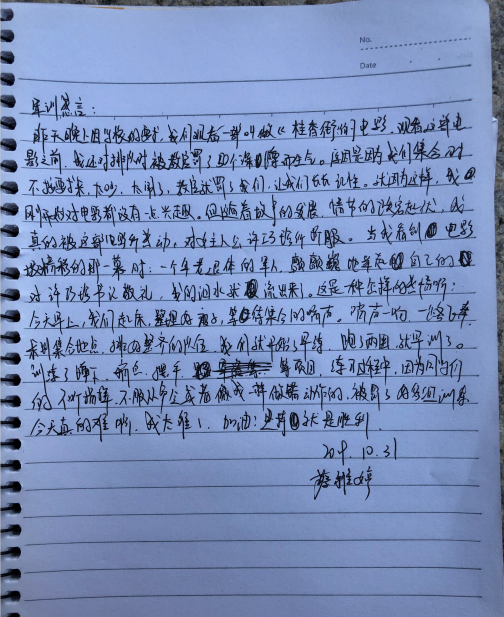 No.
Date
军训感言：
昨天晚上因学校的要求，我们观看一部叫做《桂香街》的电影，观看这部电
影之前，我还对排队时被教官罚了四个深蹲而生气。原因是因为我们集合时
不够严肃，太吵，太闹了，教官就罚了我们，让我们长长记性。就因为这样，我
刚开始对电影都没有一点兴趣。但随着故事的发展，情节的跌宕起伏，我
真的被这部电影所感动，对主人公许巧珍所折服。当我看到电影
的那一幕时：一个年老退伍的军人，颤颤巍巍地举起自己的
对许巧珍书记敬礼，我的泪水米流出来了。这是一种怎样的感情啊！
今天早上，我们起床，整理好被子，等待集合的哨声。哨声一响，一路飞奔
来到集合地点，排好整齐的队伍，我们就开始了早练，跑了两圈，就军训了。
训练了蹲下，稍息，摆手等项目，练习过程中，因为同学们
的不听指挥，不服从命令或者做错动作的，被罚了
今天真的难啊，我太难了，加油！坚持就是胜利
2019.10.31
蔡雅婷